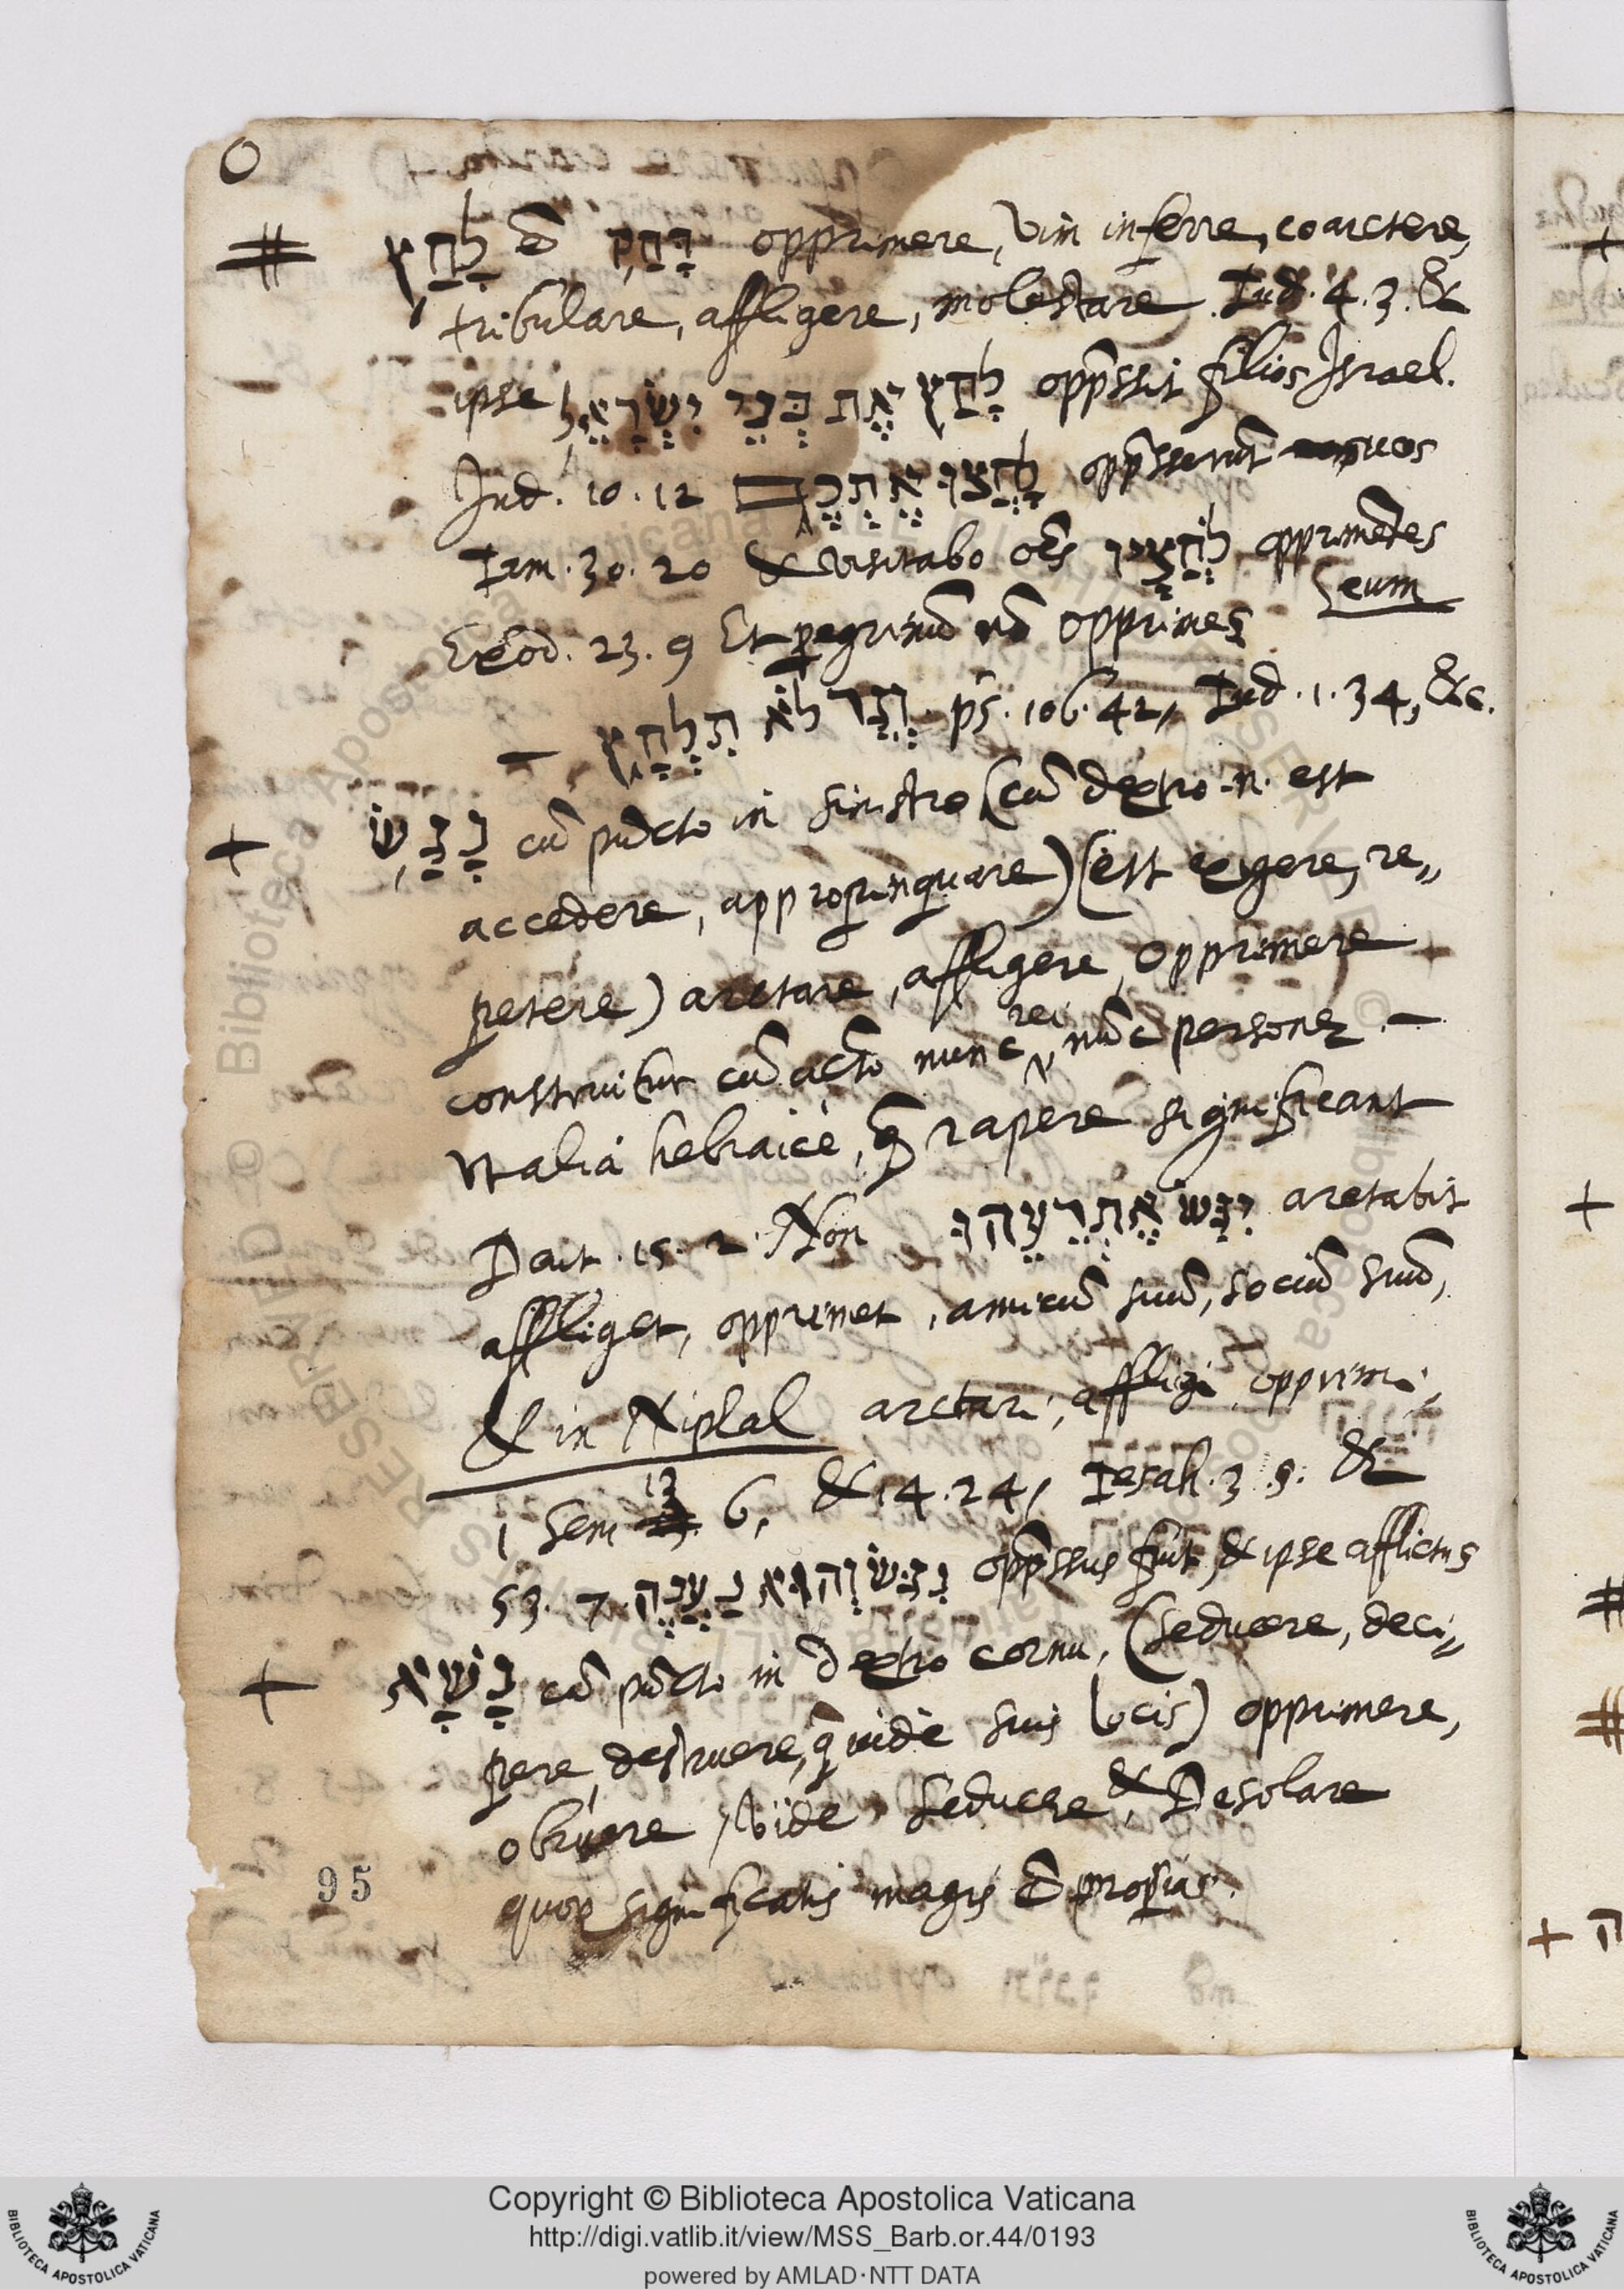 O
לָחַץ & דָּחַק opprimere, vim inferre, coarctere,
tribulare, affligere, molestare. Iud. 4. 3. &
ipse לָחַץ אֶת בְּנֵי יִשְׂרָאֵל opp̄ssit filios Israel.
Jud. 10. 12 לָחֲצוּ אֶתְכֶם opp̄sserūt uos
Ierm. 30. 20 & visitabo oēs לֹחֲצָיו opprimētes
eum
Exod. 23. 9 Et peregrinū nō opprimes
— וְגֵר לֹא תִלְחָץ. ps. 106. 42, Iud. 1. 34, &c.
נָגַשׂ cū pūcto in sinistro (cū dextro n. est
accedere, appropinquare) (est exigere, re„
petere) arctare, affligere, opprimere
construitur cū acto nunc rei nūc personę. —
vt alia hebraicè, q̄ rapere significant
Deut. 15. 2. Non יִגֹּשׂ אֶת רֵעֵהוּ arctabit
affliget, opprimet, amicū suū, sociū suū,
& in Niphal arctari, affligi opprimi,
1 Sem 13 6, & 14. 24, Iesah. 3. 5. &
53. 7. נִגַּשׂ וְהוּא נַעֲנֶה opp̄ssus fuit & ipse afflictus
נָשָׁא cū pūcto in dextro cornu, (seducere, deci„
pere, destruere, q̄ uide suis locis) opprimere,
obruere, Vide, Seducere, & Desolare
quoę significatis magis ē propriũ.
95
Copyright © Biblioteca Apostolica Vaticana
http://digi.vatlib.it/view/MSS_Barb.or.44/0193
powered by AMLAD·NTT DATA
BIBLIOTECA APOSTOLICA VATICANA
BIBLIOTECA APOSTOLICA VATICANA